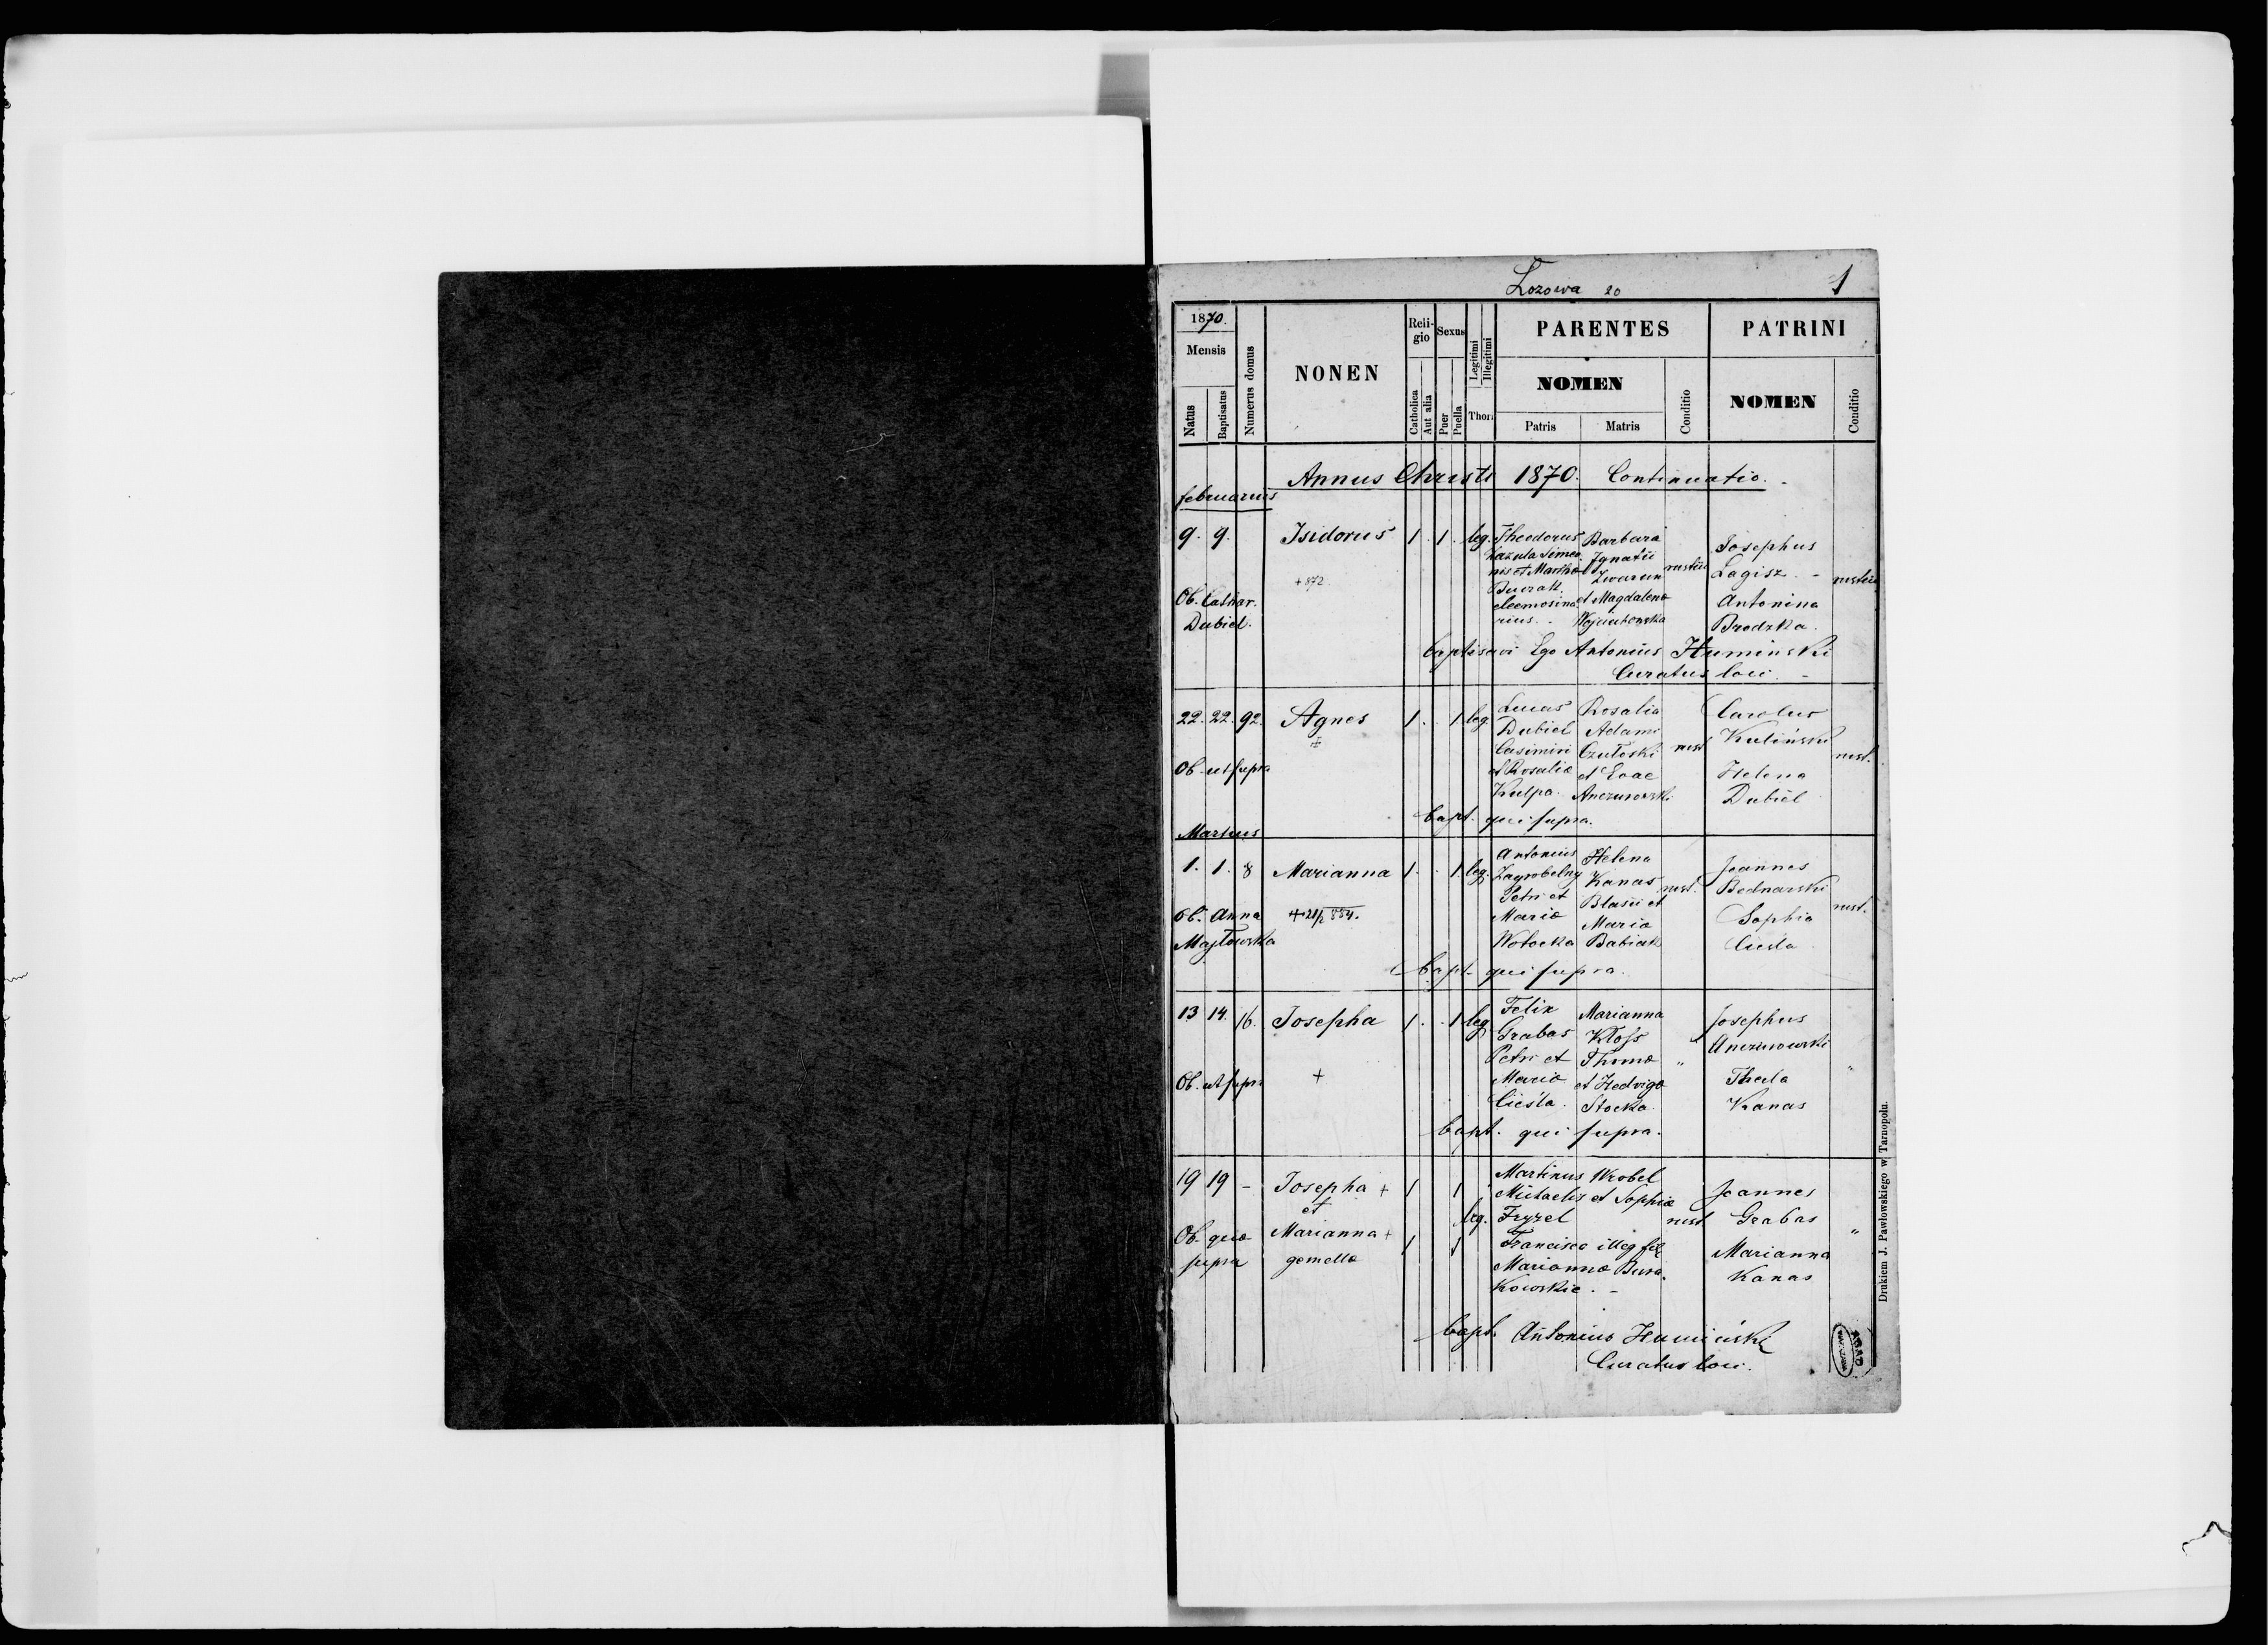 Lozowa 20
1
1870.
Mensis
Natus
Baptisatus
Numerus domus
NONEN
Religio
Catholica
Aut alia
Sexus
Puer
Puella
Legitimi
Illegitimi
Thori
PARENTES
NOMEN
Patris
Matris
Conditio
PATRINI
NOMEN
Conditio
Annus Christi 1870. Continuatio.
februarius
9. 9. Isidorus 1. 1. leg.
+ 872
Ob. Cathar.
Dubiel.
Theodorus
Simeo
nis et Marthæ
Burak
eleemosina
rius.
Barbara
Ignatii
Zwarun
et Magdalena
rustici
Josephus
Lagisz
Antonina
Brodzka.
rustici
baptisavi Ego Antonius Huminski
Curatus loci.
22. 22. 92. Agnes 1. 1. leg.
+
Ob. ut supra
Lucas
Dubiel
Casimiri
et Rosaliæ
Kulpa.
Rosalia
Adami
et Evae
rust
Carolus
Kuliński
Helena
Dubiel
rust.
bapt. qui supra.
Martius
1. 1. 8 Marianna 1. 1. leg.
Ob. Anna
Majłowska
Antonius
Zagrobelny
Petri et
Mariæ
Wołocka
Helena
Kanas
Blasii et
Maria
Babiak
rust.
Joannes
Bednarski
Sophia
Cieśla
rust.
bapt. qui supra.
13 14. 16. Josepha 1. 1 leg
+
Ob. ut supra
Felix
Grabas
Petri et
Mariæ
Cieśla.
Marianna
Kloss
Thomæ
et Hedvigæ
Stocka.
"
Josephus
Anczurowski
Thecla
Kanas
"
bapt. qui supra.
19 19 - Josepha + 1 1
et
Marianna + 1 1
gemellæ
leg.
Ob. quæ
supra
Martinus Wrobel
Michaelis et Sophiæ
Fryzel
Francisca illeg fil
Mariannæ Bura
kowskie. -
rust
Joannes
Grabas
Marianna
Kanas
"
bapt. Antonius Humiński
Curatus loci.
Drukiem J. Pawłowskiego w Tarnopolu.
AGAD